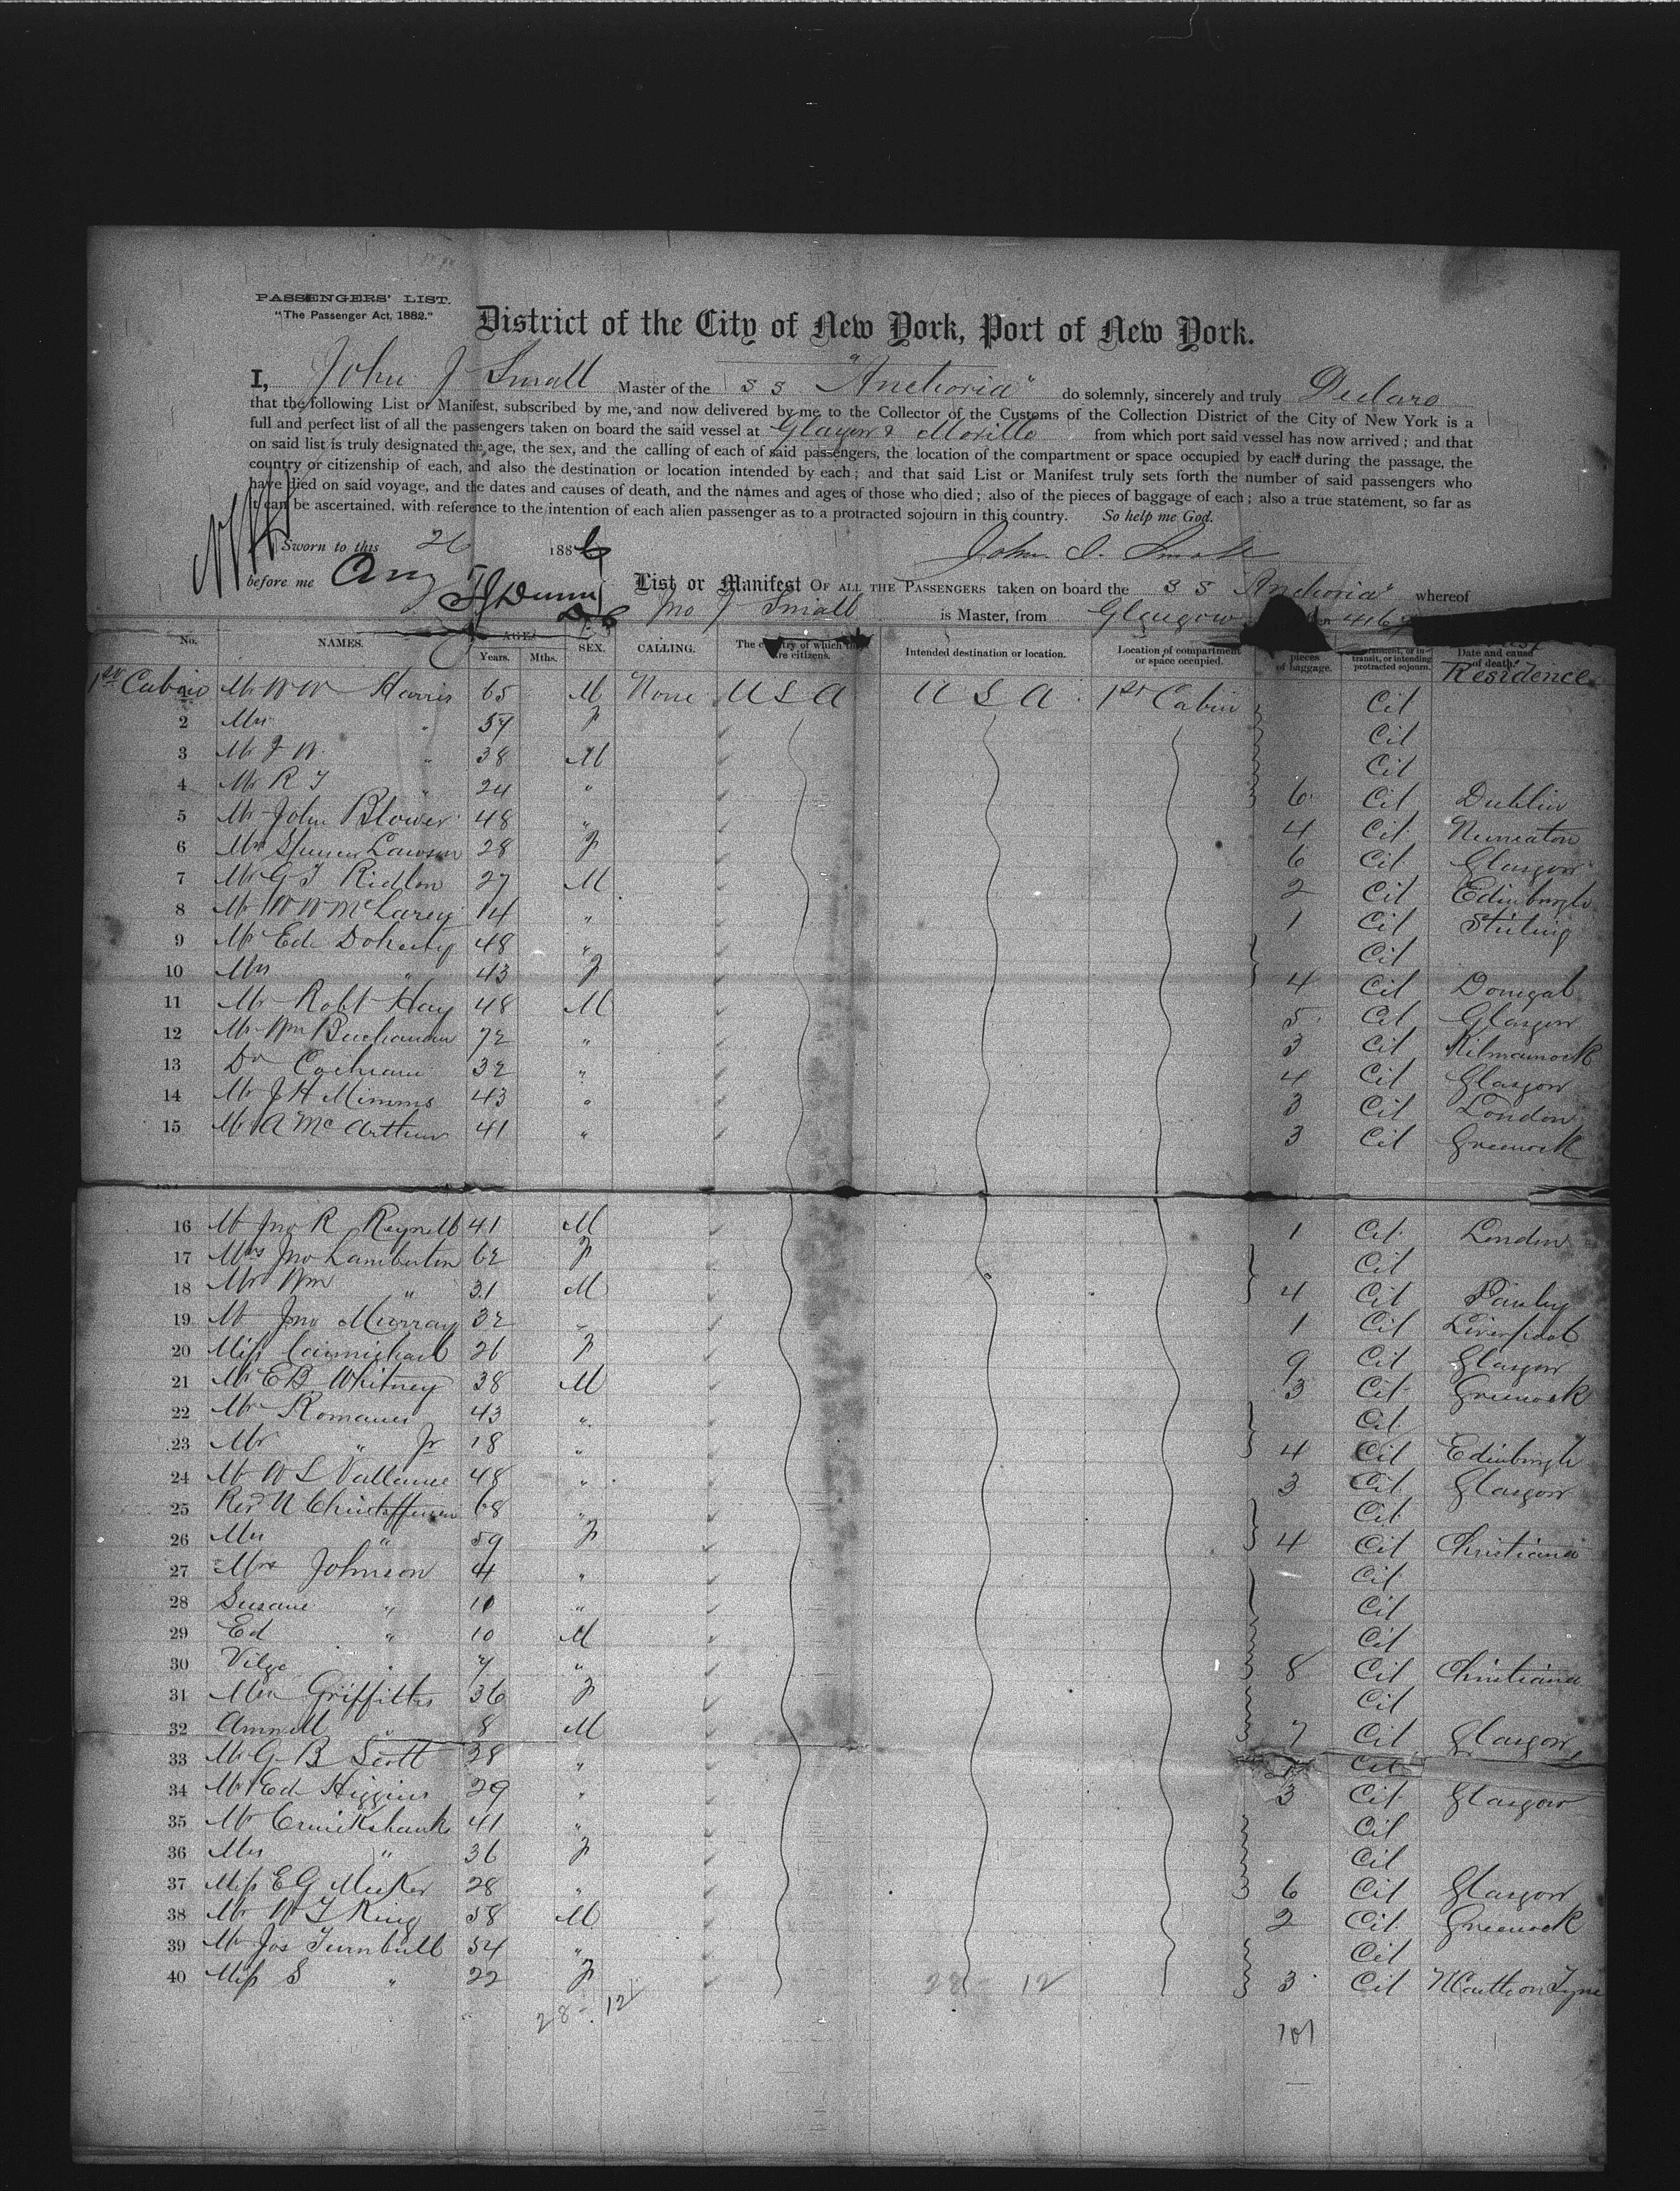 PASSENGERS' LIST.
"The Passenger Act, 1882."
District of the City of New York, Port of New York.
I, John J Small Master of the S S "Anchoria" do solemnly, sincerely and truly Declare
that the following List or Manifest, subscribed by me, and now delivered by me to the Collector of the Customs of the Collection District of the City of New York is a
full and perfect list of all the passengers taken on board the said vessel at Glasgow & Moville from which port said vessel has now arrived; and that
on said list is truly designated the age, the sex, and the calling of each of said passengers, the location of the compartment or space occupied by each during the passage, the
country or citizenship of each, and also the destination or location intended by each; and that said List or Manifest truly sets forth the number of said passengers who
have died on said voyage, and the dates and causes of death, and the names and ages of those who died; also of the pieces of baggage of each; also a true statement, so far as
it can be ascertained, with reference to the intention of each alien passenger as to a protracted sojourn in this country. So help me God.
Sworn to this 26 1886 John J. Small
before me Aug List or Manifest OF ALL THE PASSENGERS taken on board the S S Anchoria" whereof
Jno J Small is Master, from Glasgow
No. NAMES. AGE. Years. Mths. SEX. CALLING. The country of which they are citizens. Intended destination or location. Location of compartment or space occupied. pieces of baggage. transit, or intending protracted sojourn. Date and cause of death. Residence
1st Cabin Mr W W Harris 65 M None U S A U S A 1st Cabin Cit
2 Mrs " 57 F Cit
3 Mr J W " 38 M Cit
4 Mr R T " 24 " 6 Cit Dublin
5 Mr John Blower 48 " 4 Cit Nuneaton
6 Mrs Spencer Lawson 28 F 6 Cit Glasgow
7 Mr G T Ridlon 27 M 2 Cit Edinburgh
8 Mr W W McLarey 14 " 1 Cit Stirling
9 Mr Ed Doherty 48 " Cit
10 Mrs " 43 F 4 Cit Donegal
11 Mr Robt Hay 48 M 5 Cit Glasgow
12 Mr Wm Buchanan 72 " 3 Cit Kilmarnock
13 Dr Cochrane 32 " 4 Cit Glasgow
14 Mr J H Mimms 43 " 3 Cit London
15 Mr A McArthur 41 " 3 Cit Greenock
16 Mr Jno R Reynell 41 M 1 Cit London
17 Mrs Jno Lamberton 62 F Cit
18 Mr Wm " 31 M 4 Cit
19 Mr Jno Murray 32 " 1 Cit Liverpool
20 Miss Carmichael 26 F 9 Cit Glasgow
21 Mr E B Whitney 38 M 3 Cit Greenock
22 Mr Romanes 43 " Cit
23 Mr " Jr 18 " 4 Cit Edinburgh
24 Mr W L Vallance 48 " 3 Cit Glasgow
25 Rev N Christofferson 68 " Cit
26 Mrs " 59 F 4 Cit Christiana
27 Mrs Johnson 4 " Cit
28 Susane " 10 " Cit
29 Ed " 10 M Cit
30 " 8 Cit Christiana
31 Mrs Griffiths 36 F Cit
32 " 8 M 7 Cit Glasgow
33 Mr G B Scott 38 " Cit
34 Mr Ed Higgins 29 " 3 Cit Glasgow
35 Mr Cruikshank 41 " Cit
36 Mrs " 36 F Cit
37 Miss E G Meeker 28 " 6 Cit Glasgow
38 Mr W T King 58 M 2 Cit Greenock
39 Mr Jos Turnbull 54 " Cit
40 Miss S " 22 F 3 Cit NCastle on Tyne
28 - 12 28 - 12
101